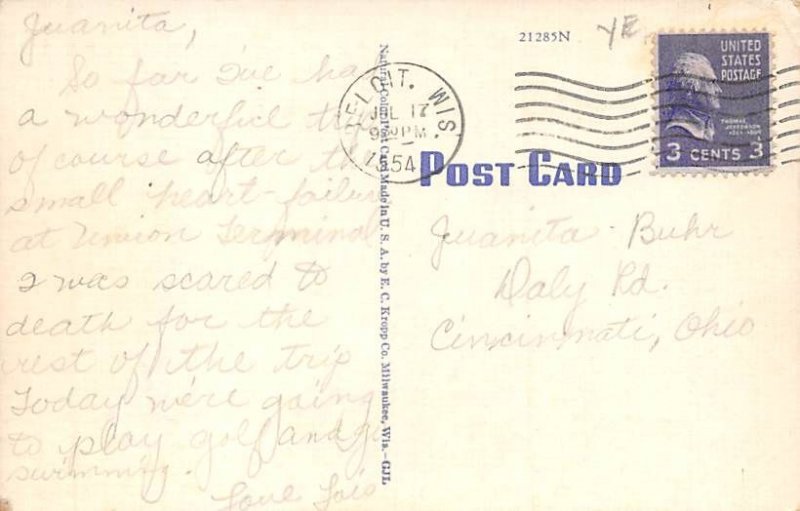 Juanita,
So far I've had
a wonderful trip
of course after the
small heart-failure
at Union Terminal
I was scared to
death for the
rest of the trip
Today we're going
to play golf and go
swimming.
Love Lois
Natural Color Post Card Made in U. S. A. by E. C. Kropp Co. Milwaukee, Wis.-GJL
21285N
YE
BELOIT, WIS.
JUL 17
PM
1954
UNITED
STATES
POSTAGE
THOMAS
JEFFERSON
3 CENTS 3
POST CARD
Juanita Buhr
Daly Rd.
Cincinnati, Ohio